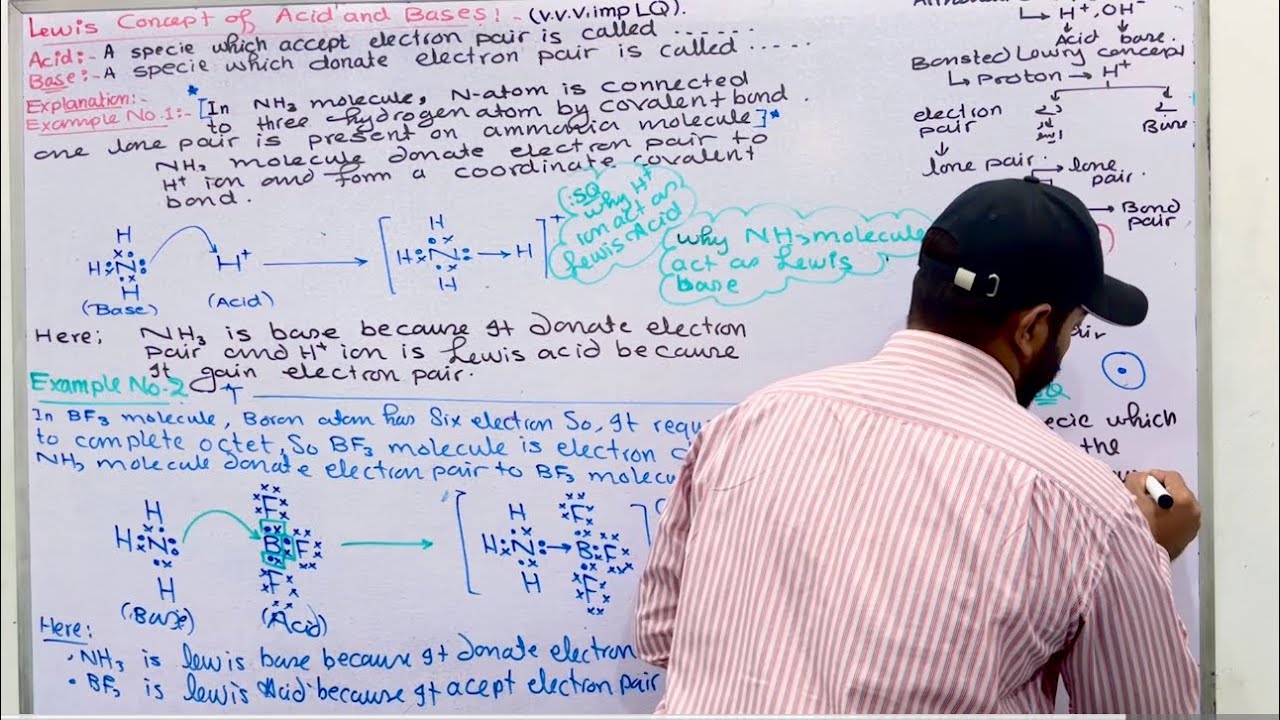 Lewis Concept of Acid and Bases:- (V.V.V.imp LQ).
Acid:- A specie which accept electron pair is called ......
Base:- A specie which donate electron pair is called .....
Explanation:-
Example No.1:- *[In NH3 molecule, N-atom is connected
to three hydrogen atom by covalent bond.
one lone pair is present on ammania molecule]*
NH3 molecule donate electron pair to
H+ ion and form a coordinate covalent
bond.
SQ
why H+
ion act as
Lewis Acid
why NH3 molecule
act as Lewis
base
H
H N
H
(Base)
H+
(Acid)
H
H N → H
H
+
Here; NH3 is base because It donate electron
pair and H+ ion is Lewis acid because
It gain electron pair.
Example No.2
In BF3 molecule, Boron atom has Six electron So, It requ
to complete octet, So BF3 molecule is electron
NH3 molecule donate electron pair to BF3 molecu
H
H N
H
(Base)
F
B F
F
(Acid)
H F
H N → B F
H F
Here:
• NH3 is lewis base because It donate electron
• BF3 is lewis Acid because It acept electron pair
H+, OH-
Acid base.
Bonsted Lowry concept
Proton → H+
electron
pair
lone pair.
lone
pair.
Bond
pair
air
SQ
ecie which
the